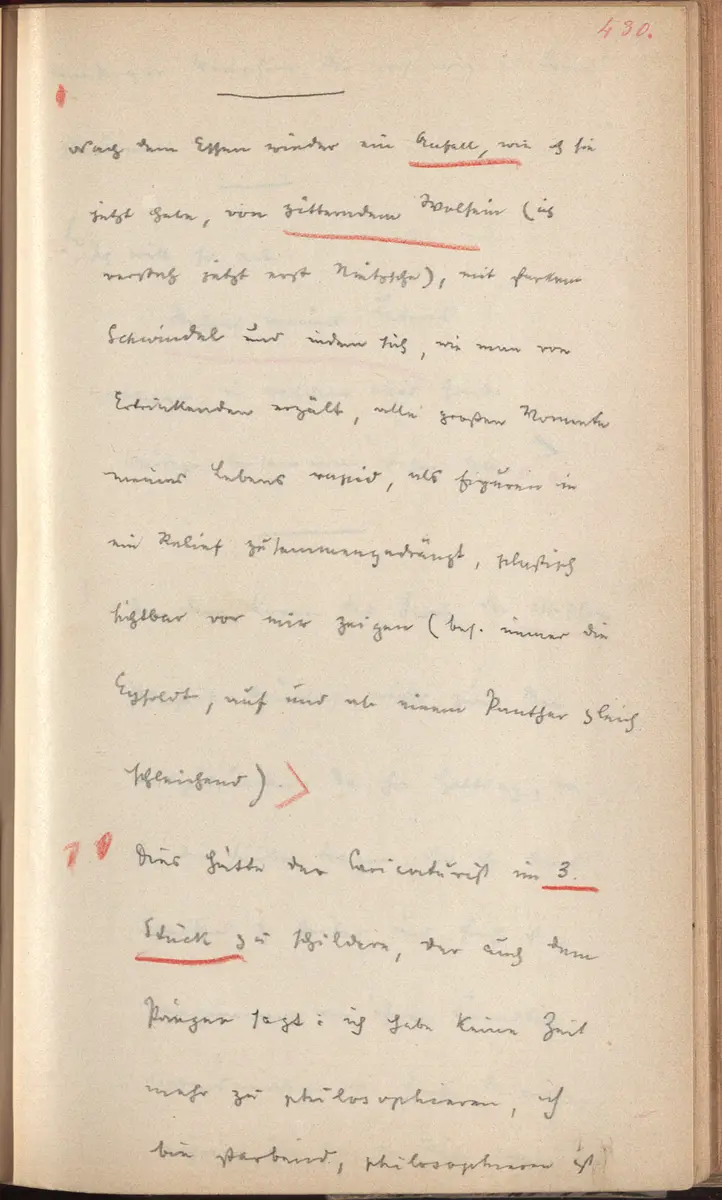 430.
Nach dem Essen wieder ein Anfall, wie ich sie
jetzt habe, von zitterndem Wolsein (ich
versteh jetzt erst Nietzsche), mit starkem
Schwindel und indem sich, wie man von
Ertrinkenden erzält, alle großen Momente
meines Lebens rapid, als Figuren in
ein Relief zusammengedrängt, plastisch
sichtbar vor mir zeigen (bes. immer die
Eysoldt, auf und ab einem Panther gleich
schleichend).
Dies hätte der Caricaturist im 3.
Stück zu schildern, der auch dem
sagt: ich habe keine Zeit
mehr zu philosophieren, ich
bin sterbend, philosophieren ist